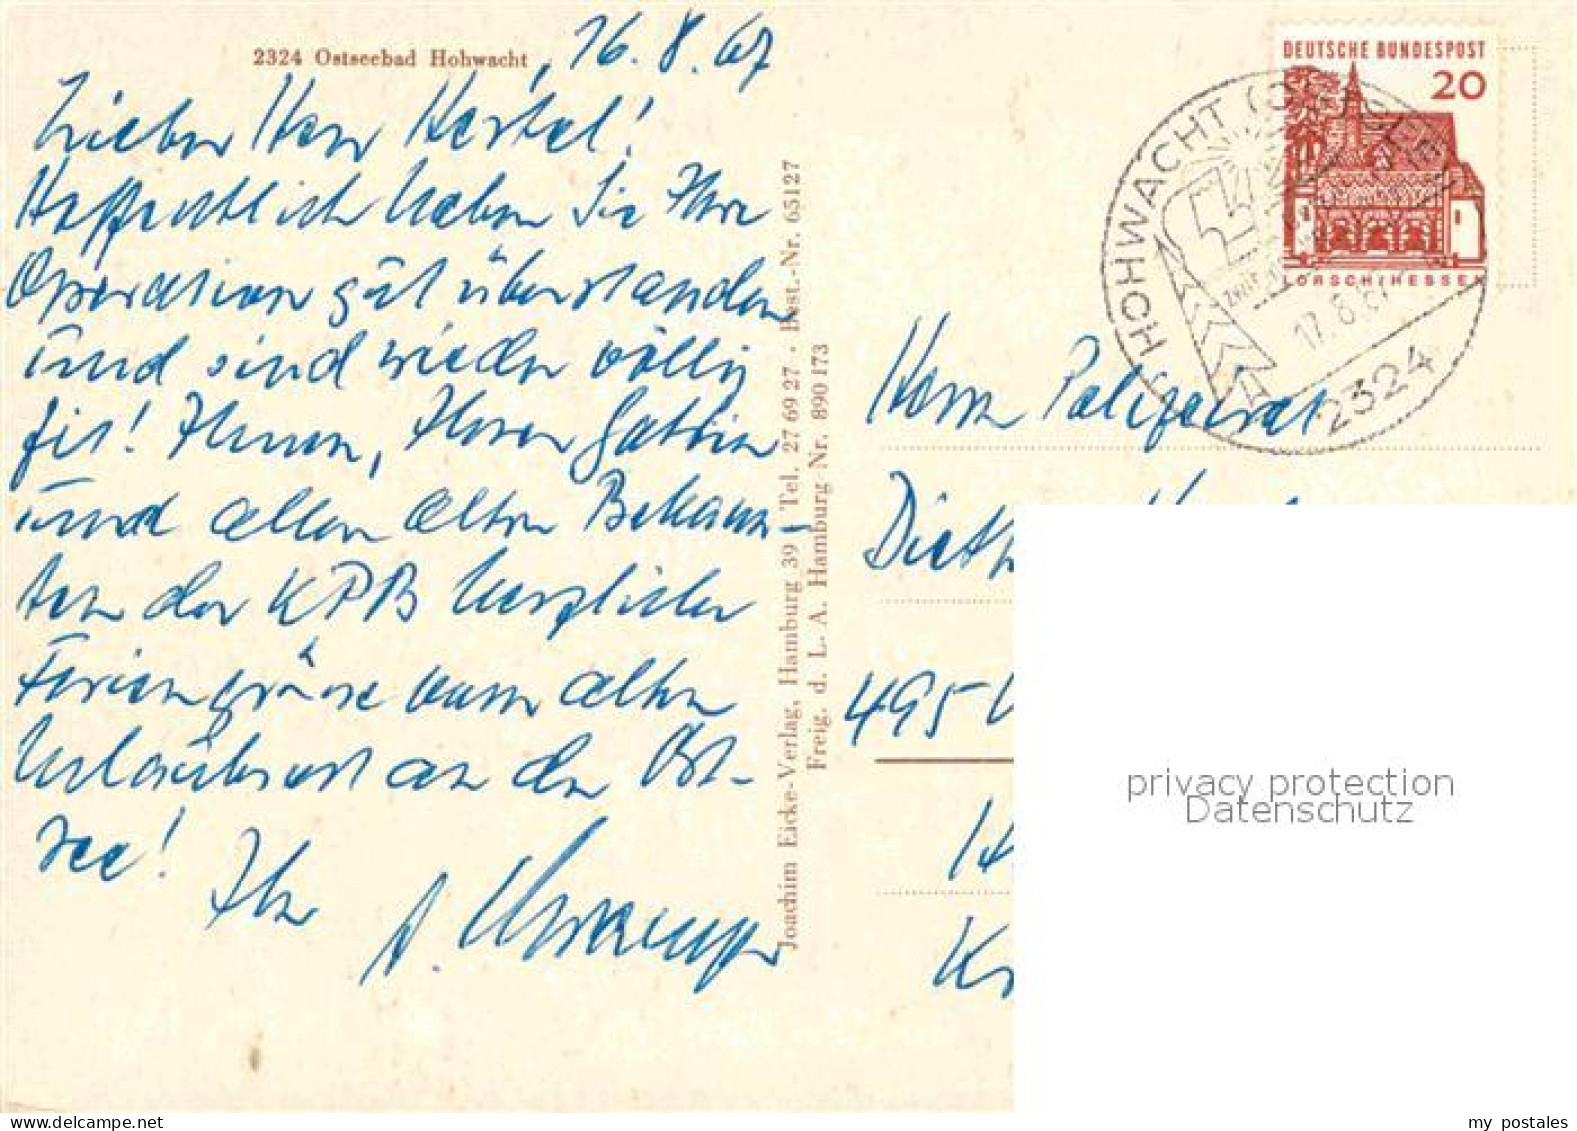 2324 Ostseebad Hohwacht, 16.8.67
Lieber Herr Hertel!
Hoffentlich haben Sie Ihre
Operation gut überstanden
und sind wieder völlig
fit! Ihnen, Ihrer Gattin
und allen alten Bekann-
ten der KPB herzliche
Feriengrüsse vom alten
Urlaubsort an der Ost-
see!
Ihr
Joachim Eicke-Verlag, Hamburg 39 · Tel. 27 69 27 · Best.-Nr. 65127
Freig. d. L. A. Hamburg Nr. 890 173
DEUTSCHE BUNDESPOST
20
LORSCH/HESSEN
HOHWACHT (OSTSEE)
17.8.67
2324
Herrn Polizeirat
Dieth
495
privacy protection
Datenschutz
my postales